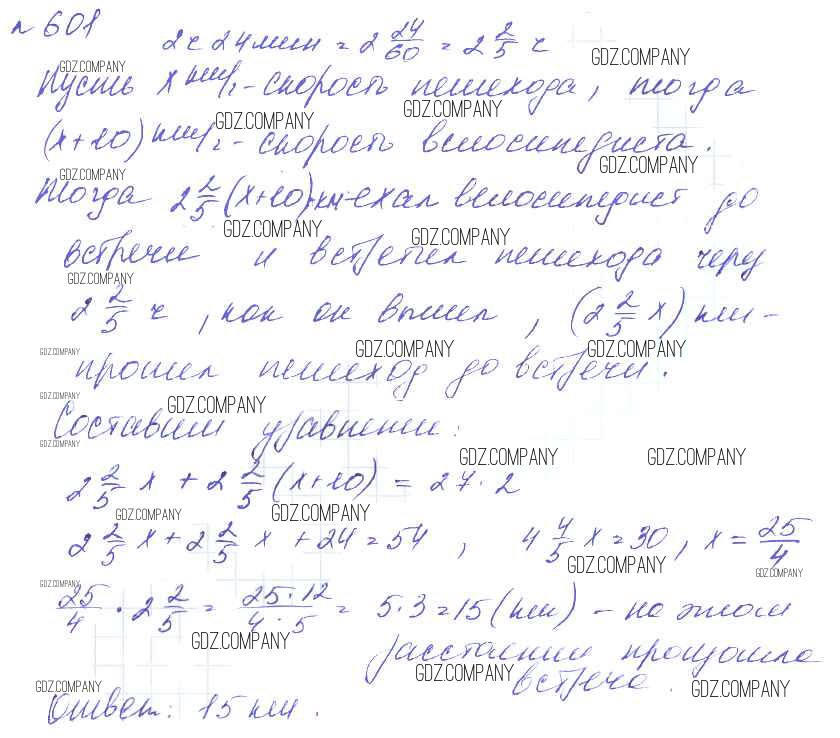 № 601
2 ч 24 мин = 2 24/60 = 2 2/5 ч
GDZ.COMPANY
GDZ.COMPANY
Пусть х км/ч - скорость пешехода, тогда
GDZ.COMPANY
GDZ.COMPANY
(х+10) км/ч - скорость велосипедиста.
GDZ.COMPANY
GDZ.COMPANY
Тогда 2 2/5 (х+10) км ехал велосипедист до
GDZ.COMPANY
GDZ.COMPANY
встречи и встретил пешехода через
GDZ.COMPANY
2 2/5 ч, как он вышел, (2 2/5 х) км -
GDZ.COMPANY
GDZ.COMPANY
GDZ.COMPANY
прошел пешеход до встречи.
GDZ.COMPANY
GDZ.COMPANY
Составим уравнение:
GDZ.COMPANY
GDZ.COMPANY
GDZ.COMPANY
2 2/5 х + 2 2/5 (х+10) = 27 · 2
GDZ.COMPANY
GDZ.COMPANY
2 2/5 х + 2 2/5 х + 24 = 54, 4 4/5 х = 30, х = 25/4
GDZ.COMPANY
GDZ.COMPANY
GDZ.COMPANY
25/4 · 2 2/5 = 25·12/4·5 = 5·3 = 15 (км) - на этом
GDZ.COMPANY
расстоянии произошла
GDZ.COMPANY
встреча.
GDZ.COMPANY
GDZ.COMPANY
Ответ: 15 км.